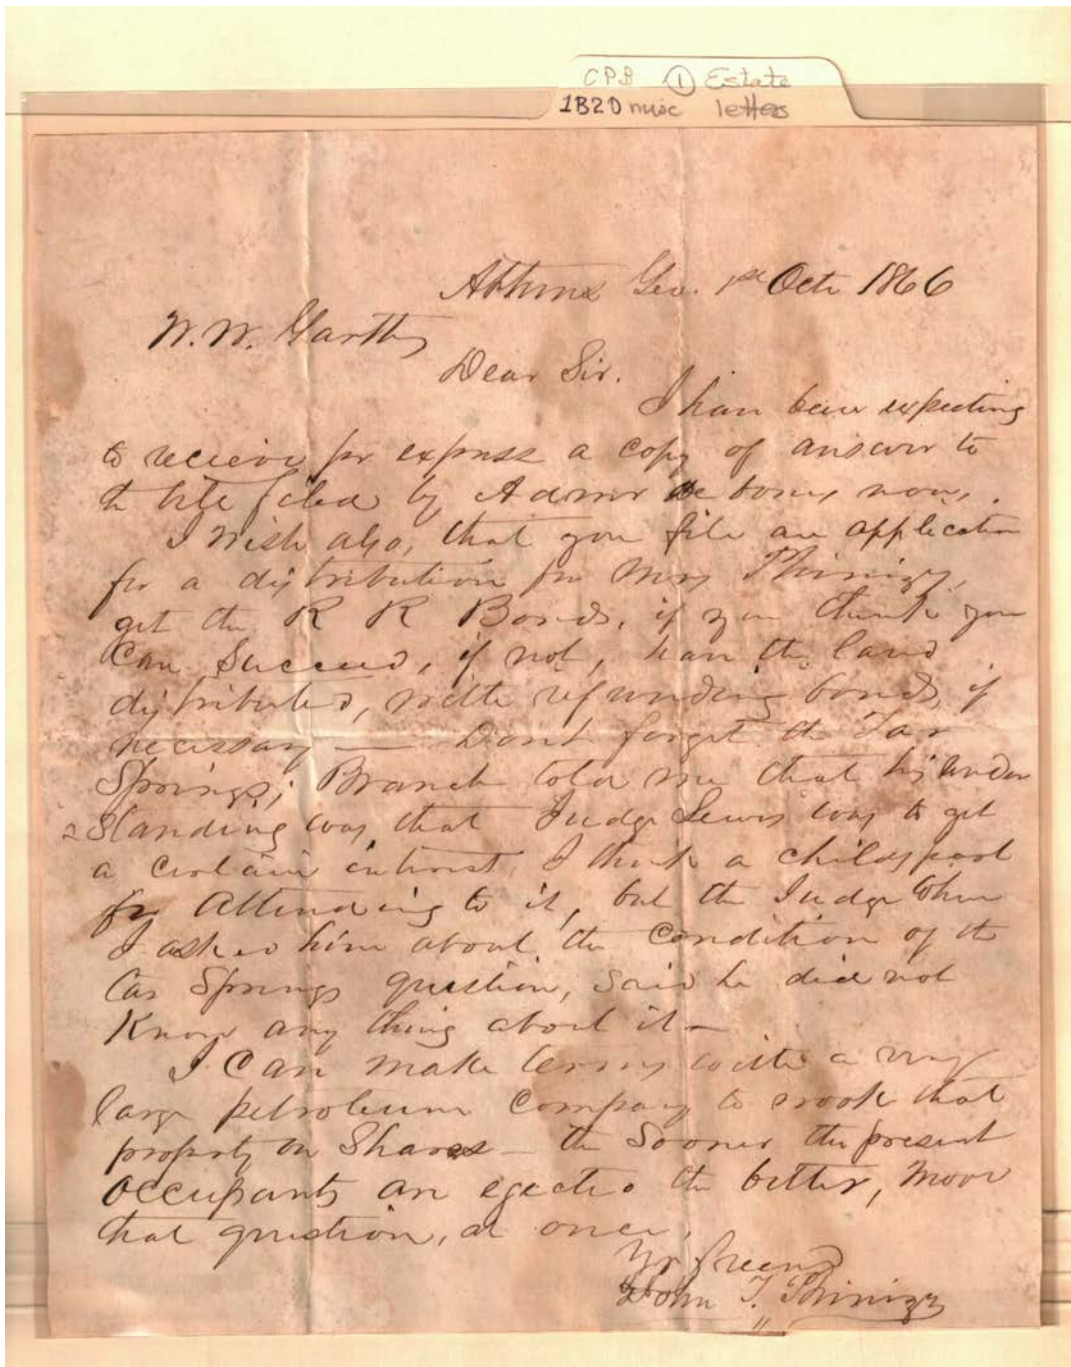 CPB ① Estate
1B2D misc letters
Athens Geo. 1st Octr 1866
W. W. Garth
Dear Sir.
I have been expecting
to recieve pr express a copy of answer to
the bill filed by Admr de bonis non,.
I wish also, that you file an application
for a distribution for Mrs Phinizy,
get the R R Bonds, if you think you
can succeed, if not, have the land
distributed, with refunding bonds, if
necessary — Dont forget the Tar
Springs; Branch told me that his under
standing was that Judge Lewis was to get
a certain interest, I think a childs part
for attending to it, but the Judge when
I asked him about the condition of the
Tar Springs question, said he did not
Know any thing about it —
I can make terms with a very
large petroleum company to work that
property on Shares — the sooner the present
occupants are ejected the better, move
that question, at once,
Yr friend
John T. Phinizy